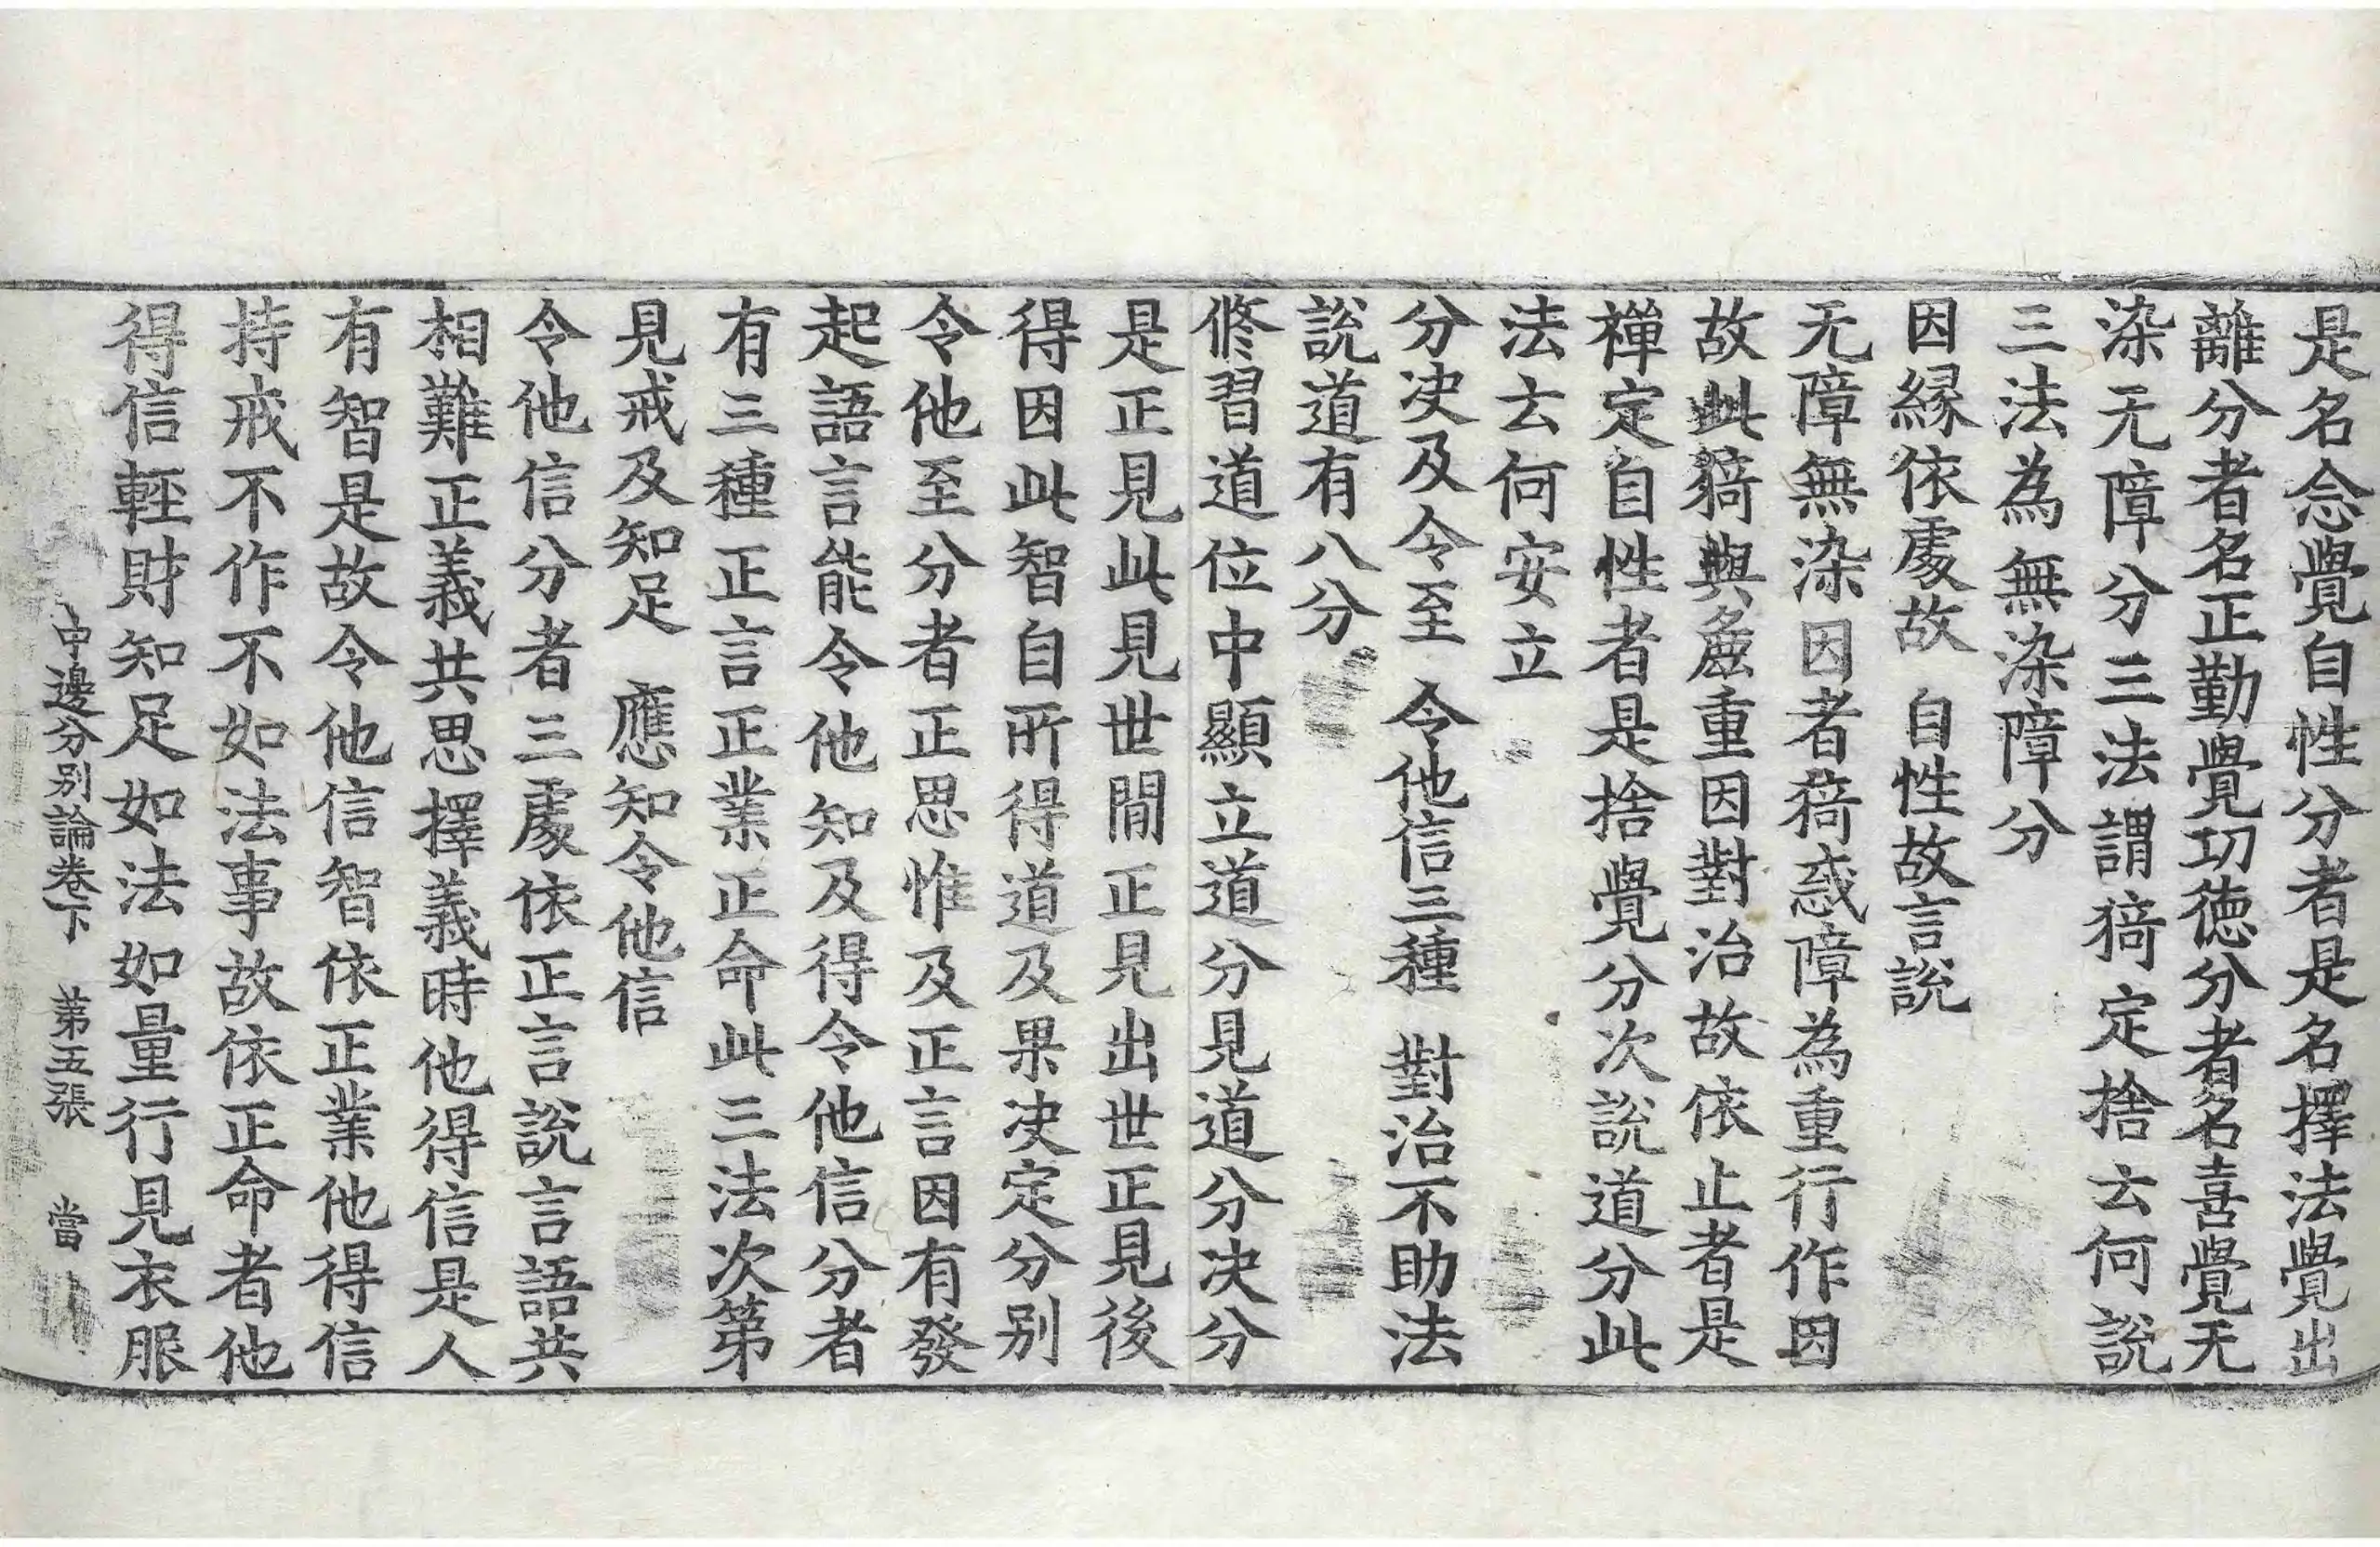 是名念覺自性分者是名擇法覺出
離分者名正勤覺功德分者名喜覺无
染无障分三法謂猗定捨云何說
三法為無染障分
因縁依處故　自性故言說
无障無染因者猗惑障為重行作因
故此猗與麁重因對治故依止者是
禪定自性者是捨覺分次說道分此
法云何安立
分决及令至　令他信三種　對治不助法
說道有八分
修習道位中顯立道分見道分分决分
是正見此見世間正見出世正見後
得因此智自所得道及果决定分别
令他至分者正思惟及正言因有發
起語言能令他知及得令他信分者
有三種正言正業正命此三法次第
見戒及知足　應知令他信
令他信分者三處依正言說言語共
相難正義共思擇義時他得信是人
有智是故令他信智依正業他得信
持戒不作不如法事故依正命者他
得信輕財知足如法如量行見衣服
中邊分别論卷下　第五張　當